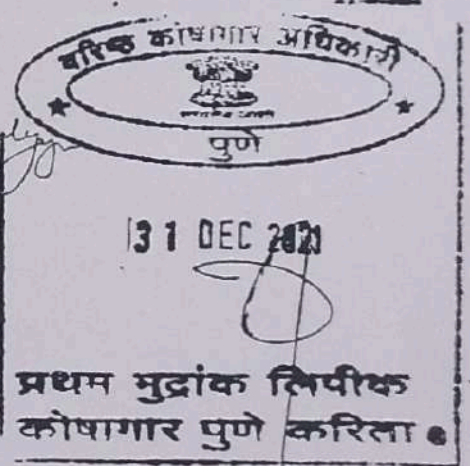 वरिष्ठ कोषागार अधिकारी
पुणे
31 DEC 2021
प्रथम मुद्रांक लिपीक
कोषागार पुणे करिता